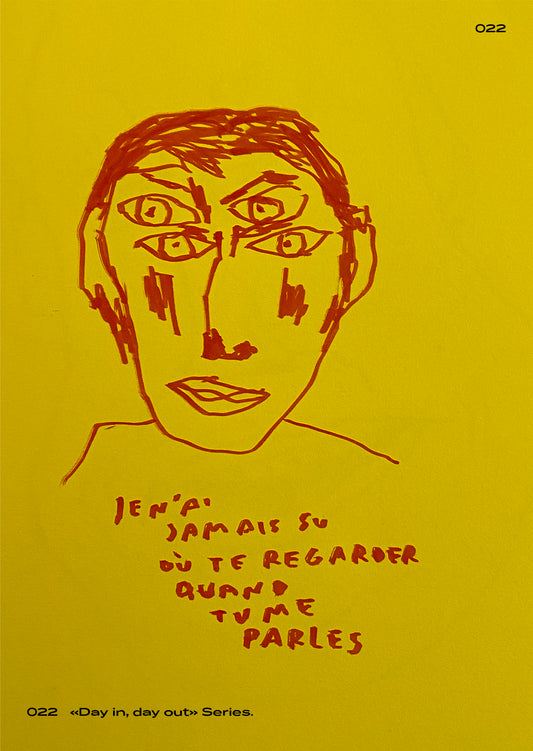 022
JE N'AI
JAMAIS SU
OÙ TE REGARDER
QUAND
TU ME
PARLES
022 «Day in, day out» Series.